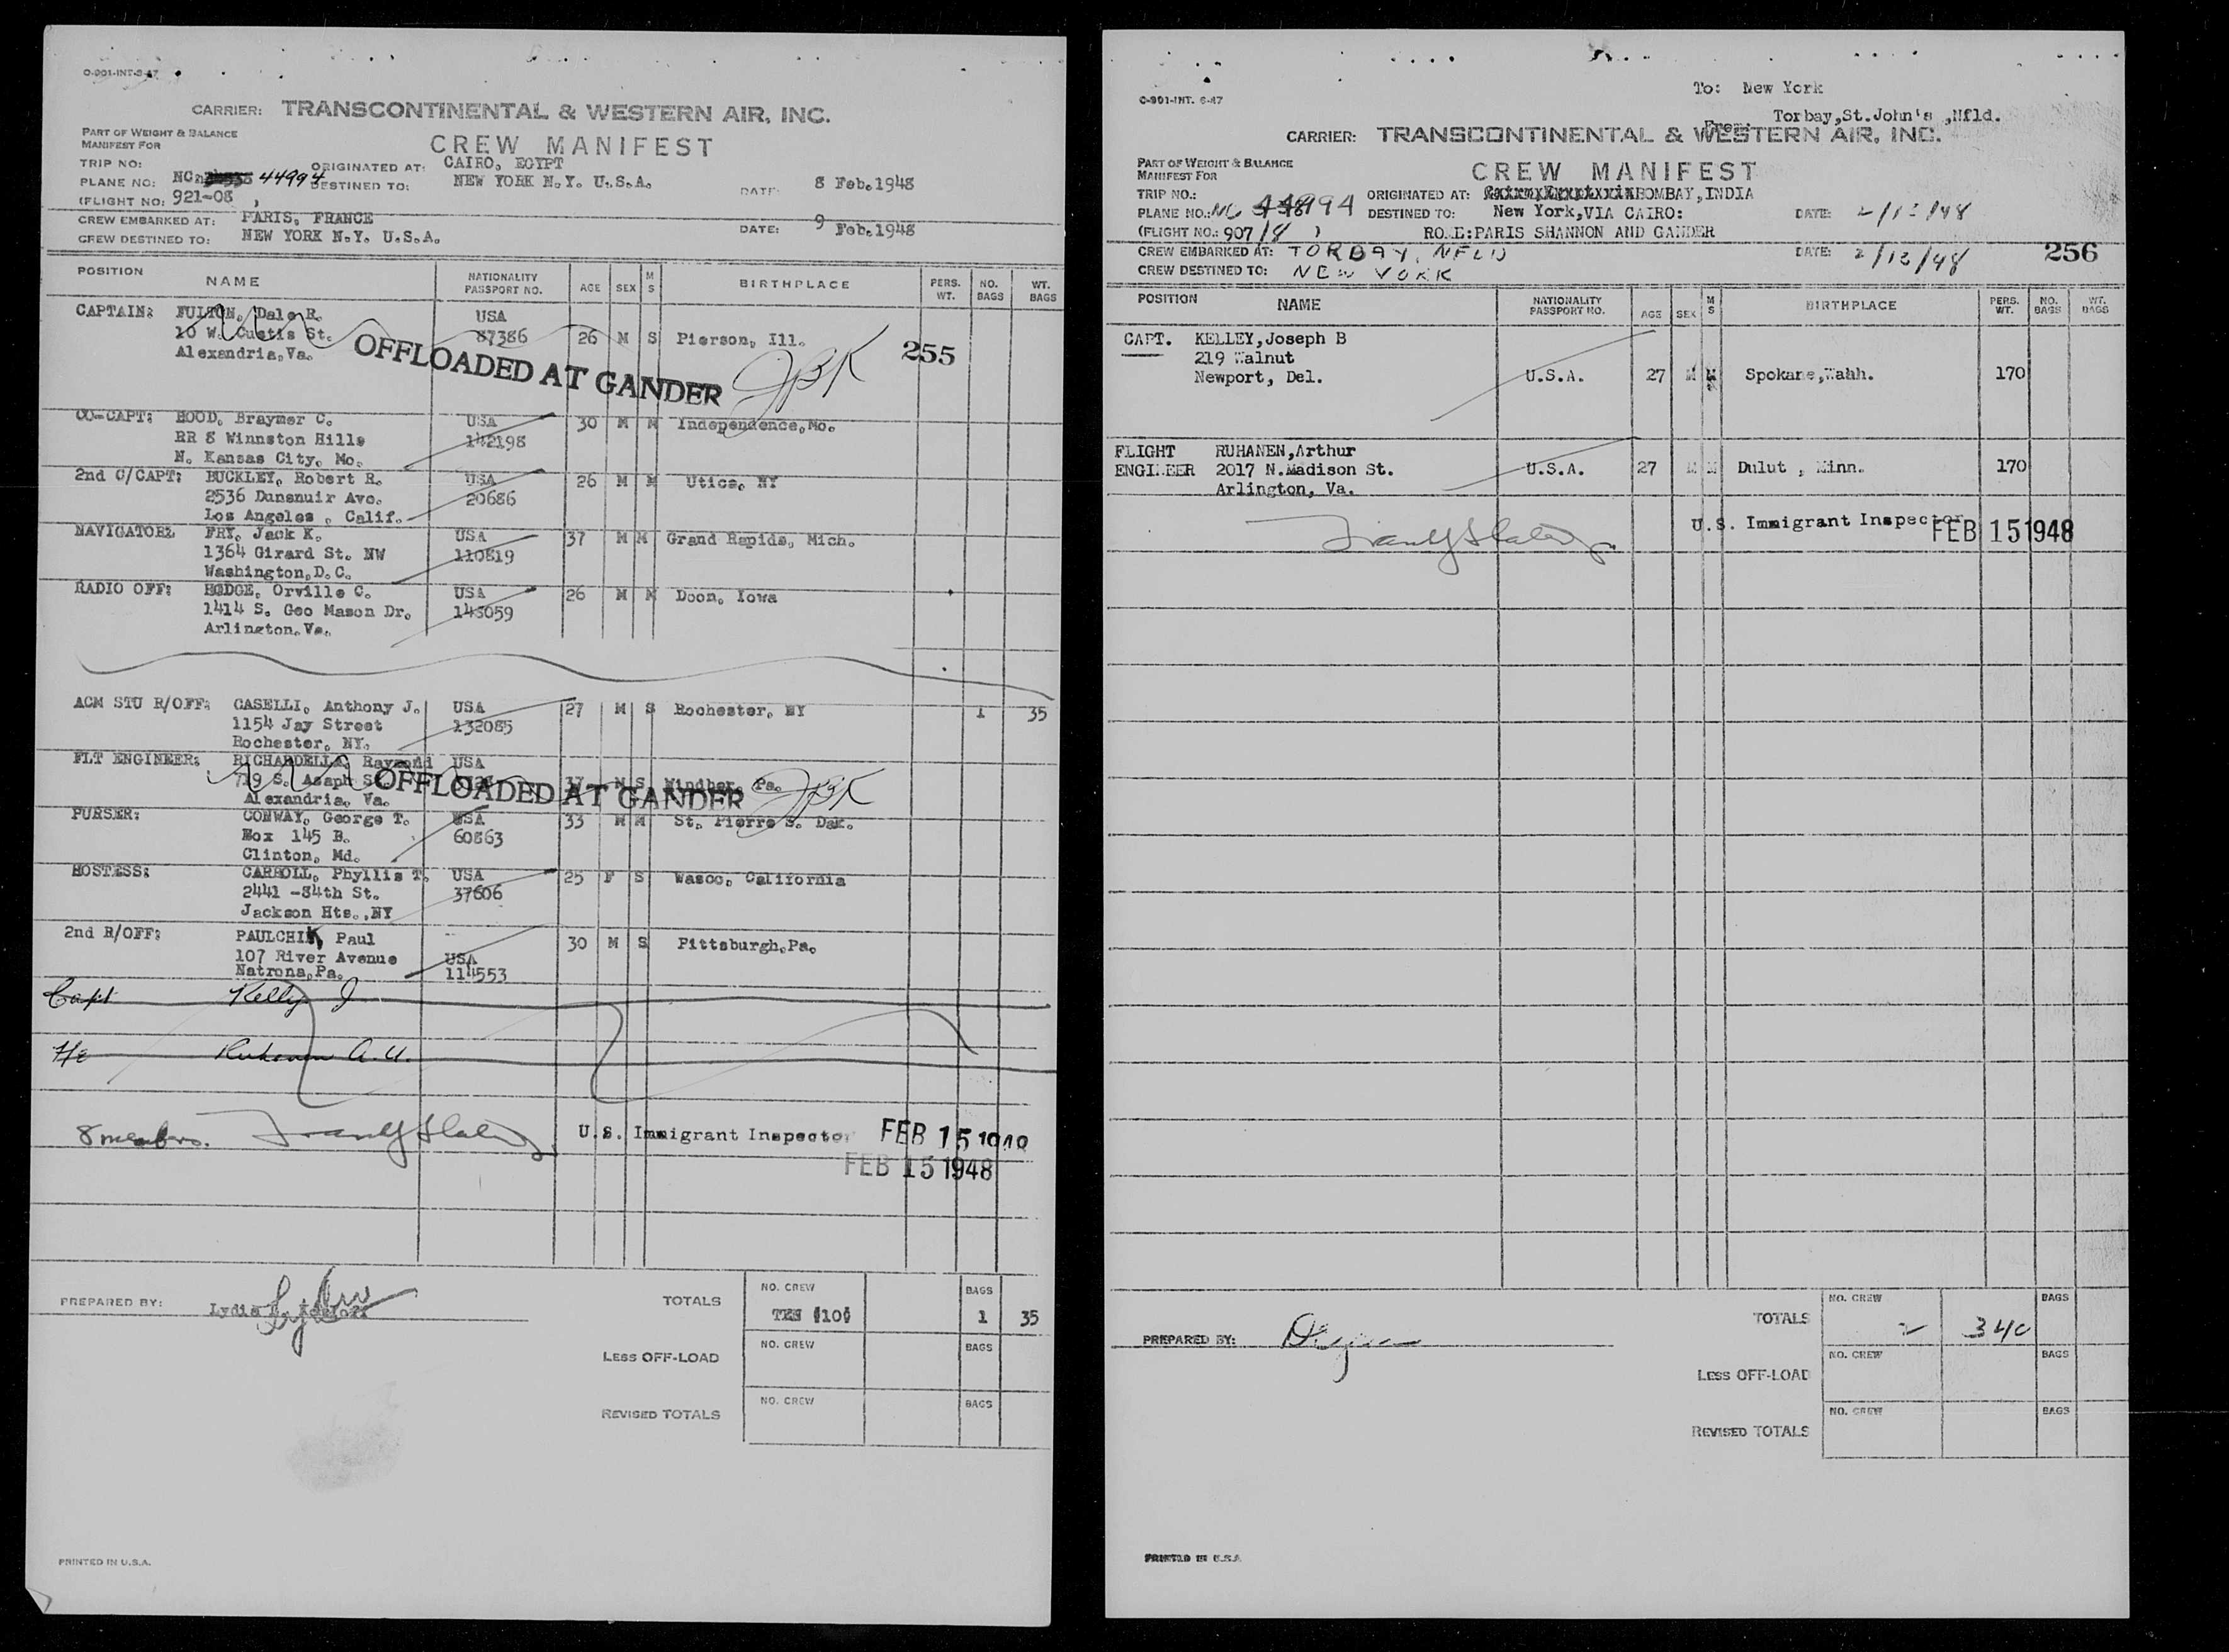 O-901-INT-8-47
CARRIER: TRANSCONTINENTAL & WESTERN AIR, INC.
PART OF WEIGHT & BALANCE
MANIFEST FOR
CREW MANIFEST
TRIP NO: ORIGINATED AT: CAIRO, EGYPT
PLANE NO: NC 44994 DESTINED TO: NEW YORK N.Y. U.S.A. DATE: 8 Feb.1948
(FLIGHT NO: 921-08 )
CREW EMBARKED AT: PARIS, FRANCE DATE: 9 Feb.1948
CREW DESTINED TO: NEW YORK N.Y. U.S.A.
POSITION NAME NATIONALITY PASSPORT NO. AGE SEX M S BIRTHPLACE PERS. WT. NO. BAGS WT. BAGS
CAPTAIN: FULTON, Dale R. USA
10 W. Custis St. 87386 26 M S Pierson, Ill.
Alexandria, Va.
OFFLOADED AT GANDER JBK 255
CO-CAPT: HOOD, Braymer C. USA 30 M M Independence, Mo.
RR 8 Winnston Hills 142198
N. Kansas City, Mo.
2nd C/CAPT: BUCKLEY, Robert R. USA 26 M M Utica, NY
2536 Dunsnuir Ave. 20686
Los Angeles , Calif.
NAVIGATOR: FRY, Jack K. USA 37 M M Grand Rapids, Mich.
1364 Girard St. NW 110819
Washington, D.C.
RADIO OFF: HODGE, Orville C. USA 26 M M Doon, Iowa
1414 S. Geo Mason Dr. 143059
Arlington, Va.
ACM STU R/OFF: CASELLI, Anthony J. USA 27 M S Rochester, NY 1 35
1154 Jay Street 132085
Rochester, NY.
FLT ENGINEER: RICHARDELLA, Raymond USA
719 S. Asaph 37 M S Windber, Pa.
Alexandria, Va.
OFFLOADED AT GANDER JBK
PURSER: CONWAY, George T. USA 33 M M St. Pierre S. Dak.
Box 145 B. 60863
Clinton, Md.
HOSTESS: CARROLL, Phyllis T. USA 25 F S Wasco, California
2441 -84th St. 37606
Jackson Hts.,NY
2nd R/OFF: PAULCHIK, Paul 30 M S Pittsburgh,Pa.
107 River Avenue USA
Natrona,Pa. 114553
Capt Kelly J
F/E Ruhanen A.U.
8 members. U.S. Immigrant Inspector FEB 15 1948
FEB 15 1948
PREPARED BY: Lydia
TOTALS NO. CREW TEN (10) BAGS 1 35
LESS OFF-LOAD NO. CREW BAGS
REVISED TOTALS NO. CREW BAGS
PRINTED IN U.S.A.
To: New York
O-901-INT. 6-47
From: Torbay,St.John's ,Nfld.
CARRIER: TRANSCONTINENTAL & WESTERN AIR, INC.
PART OF WEIGHT & BALANCE
MANIFEST FOR
CREW MANIFEST
TRIP NO.: ORIGINATED AT: BOMBAY,INDIA
PLANE NO.: NC 44994 DESTINED TO: New York,VIA CAIRO: DATE: 2/13/48
(FLIGHT NO.: 907/8 ) ROME:PARIS SHANNON AND GANDER
CREW EMBARKED AT: TORBAY, NFLD DATE: 2/13/48 256
CREW DESTINED TO: NEW YORK
POSITION NAME NATIONALITY PASSPORT NO. AGE SEX M S BIRTHPLACE PERS. WT. NO. BAGS WT. BAGS
CAPT. KELLEY,Joseph B
219 Walnut
Newport, Del. U.S.A. 27 M M Spokane,Wahh. 170
FLIGHT RUHANEN,Arthur
ENGINEER 2017 N.Madison St. U.S.A. 27 M M Dulut , Minn. 170
Arlington, Va.
U.S. Immigrant Inspector FEB 15 1948
PREPARED BY:
TOTALS NO. CREW 2 340 BAGS
LESS OFF-LOAD NO. CREW BAGS
REVISED TOTALS NO. CREW BAGS
PRINTED IN U.S.A